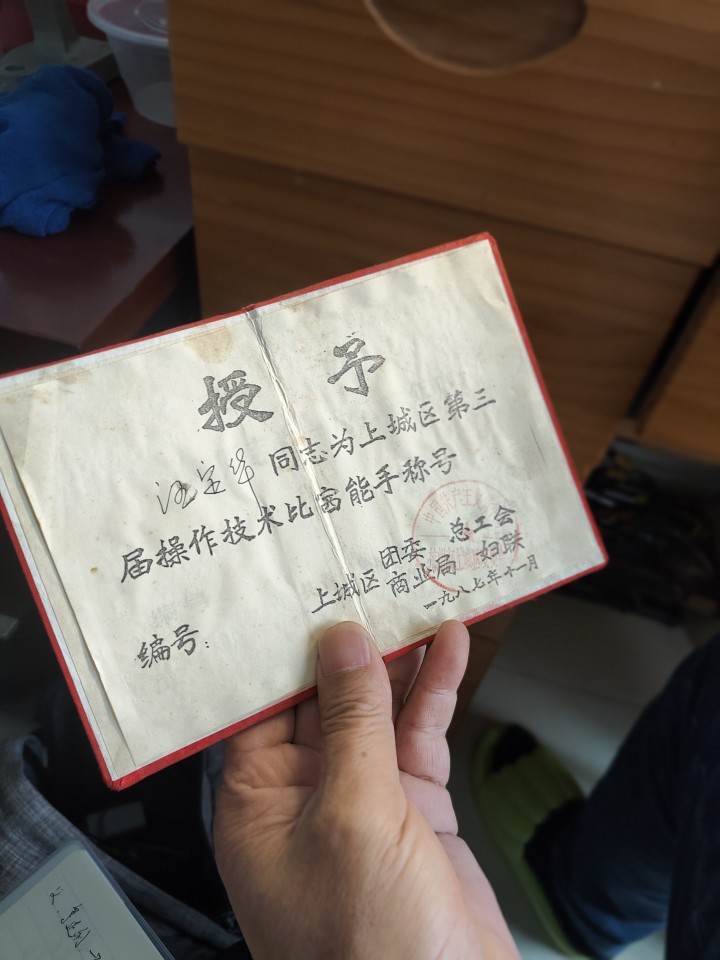 授予
汪宝华 同志为上城区第三
届操作技术比赛能手称号
团委 总工会
上城区 商业局 妇联
一九八七年十一月
编号: